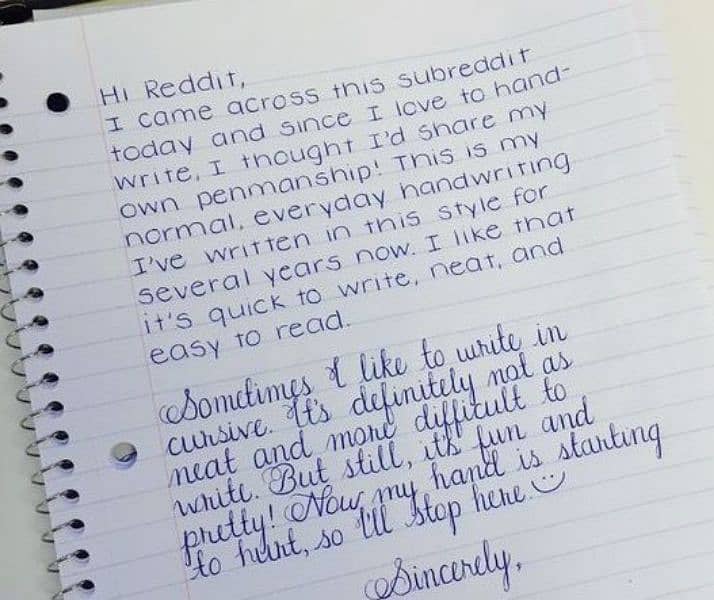 Hi Reddit,
I came across this subreddit
today and since I love to hand-
write, I thought I'd share my
own penmanship! This is my
normal, everyday handwriting.
I've written in this style for
several years now. I like that
it's quick to write, neat, and
easy to read.
Sometimes I like to write in
cursive. It's definitely not as
neat and more difficult to
write. But still, it's fun and
pretty! Now my hand is starting
to hurt, so I'll stop here ☺
Sincerely,